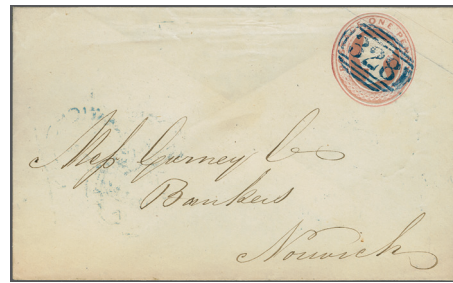 ONE PEN
328
Mess Gurney & Co
Bankers
Norwich